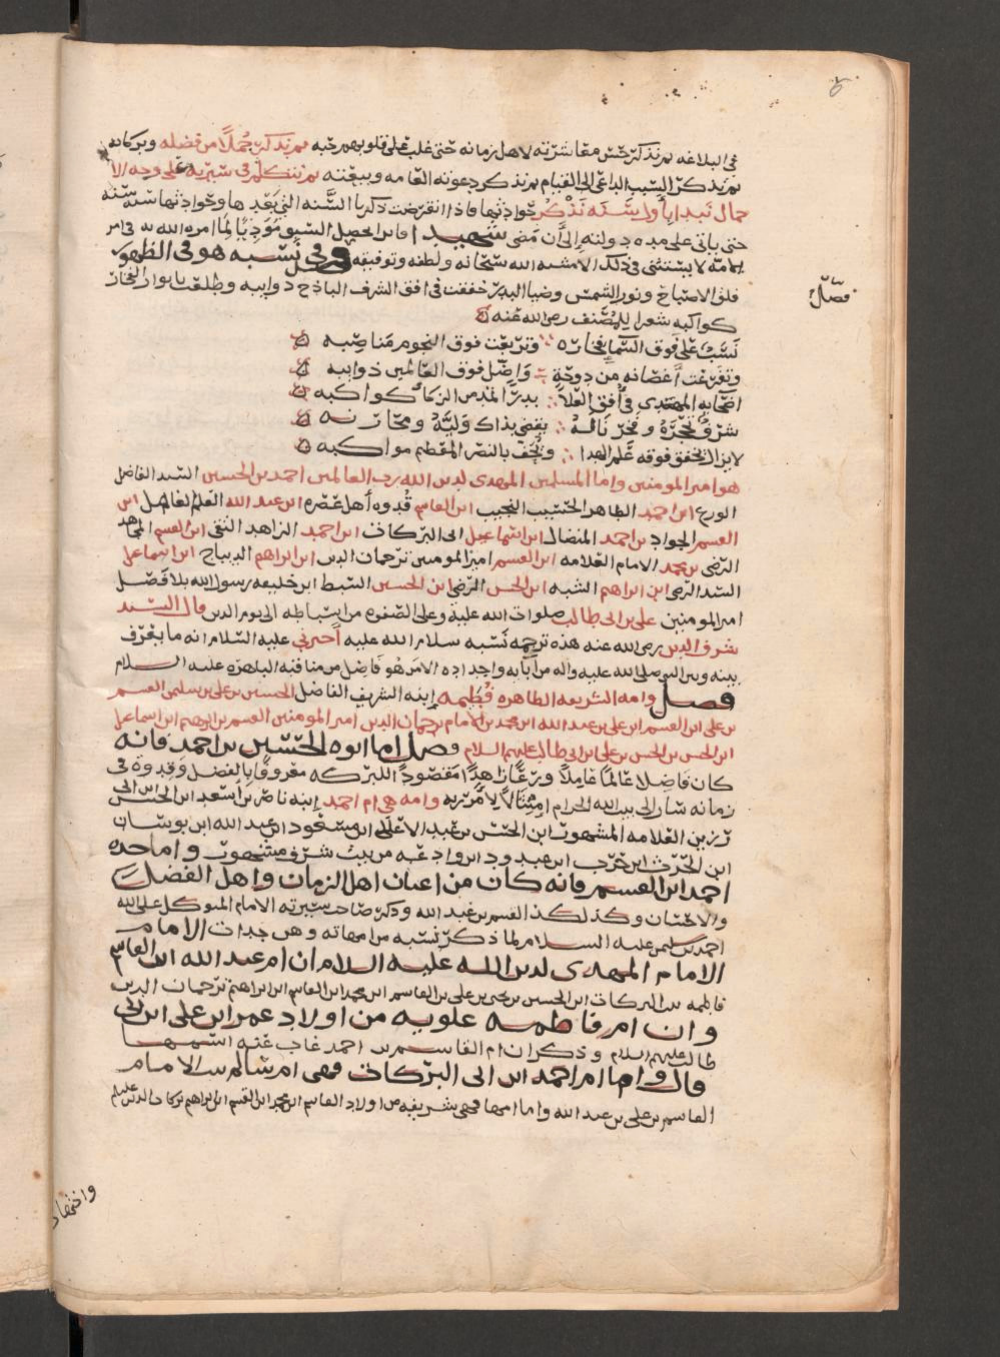 في البلاغه ثم نذكر حسن معاشرته لاهل زمانه حتى غلب على قلوبهم حبه ثم نذكر جملا من فضله وبركاته
ثم نذكر السبب الداعي الى القيام ثم نذكر دعوته العامه وبيعته ثم نتكلم في سيرته على وجه الا
جمال نبدا باول سنه نذكر حوادثها فاذا انقرضت ذكرنا السنه التي بعدها وحوادثها سنه سنه
حتى ياتي على مده دولته الى ان مضى شهيدا
لا يستثنى في ذلك الا مشيه الله سبحانه ولطفه وتوفيقه فصل في نسبه هو في الظهور
فلق الاصباح ونور الشمس وضيا البدر خفقت في افق الشرف الباذخ ذوايبه وطلعت بانوار الفخار
كواكبه شعرا للمصنف رضي الله عنه
فصل
نسب على فوق السما فخاره وتربعت فوق النجوم مناصبه
وتفرعت اغصانه من دوحة واضل فوق العالمين ذوايبه
اضحا به المهدي في افق العلا بدرا كواكبه
شرف وفخر بذاك وليه ومحاربه
لا زال يخفق فوقه علم الهدا ويحف بالنصر المعظم مواكبه
هو امير المومنين وامام المسلمين المهدي لدين الله رب العالمين احمد بن الحسين السيد الفاضل
الورع ابن احمد الطاهر الحسيب النجيب ابن القاسم قدوه اهل عصره ابن عبد الله العلم الفاضل ابن
القسم الجواد بن احمد المفضال ابن اسماعيل ابي البركات ابن احمد الزاهد التقي ابن القسم المجاهد
الرضي بن محمد الامام العلامه ابن القسم امير المومنين ترجمان الدين ابن ابراهيم الديباج ابن اسماعيل
السيد الرضي ابن ابراهيم الشبه ابن الحسن الرضي ابن الحسن السبط ابن خليفه رسول الله بلا فصل
امير المومنين علي بن ابي طالب صلوات الله عليه وعلى الصفوه من اسباطه الى يوم الدين قال السيد
شرف الدين رضي الله عنه هذه ترجمه نسبه سلام الله عليه اخبرني عليه السلام انه ما يعرف
بينه وبين النبي صلى الله عليه واله من ابايه واجداده الا من هو فاضل من مناقبه الباهره عليه السلام
فصل وامه الشريفه الطاهره فطيمه ابنه الشريف الفاضل الحسين بن علي بن سليمن القسم
بن علي ابن القسم ابن علي بن عبد الله ابن محمد بن الامام ترجمان الدين امير المومنين القسم بن ابرهيم ابن اسماعيل
ابن الحسن بن الحسن بن علي بن ابي طالب عليهم السلام فصل اما ابوه الحسين بن احمد فانه
كان فاضلا عالما عاملا ورعا زاهدا مقصودا للبركه معروفا بالفضل وقدوه في
زمانه سار الى بيت الله الحرام وامه هي ام احمد ابنه ناصر بن اسعد ابن الحسن ابن ابي
رزين العلامه المشهور ابن الحسن بن عبد الاعلى ابن مسعود ابن عبد الله ابن بوسان
ابن الحرث ابن حرب ابن عبدود ابن وادعه من بيت شرف مشهور واما جده
احمد ابن القسم فانه كان من اعيان اهل الزمان واهل الفضل
والاحسان وكذلك القسم بن عبد الله وذكر صاحب سيرته الامام المتوكل على الله
احمد بن سليمن عليه السلام لما ذكر نسبه من امهاته وهن جدات الامام
الامام المهدي لدين الله عليه السلام ان ام عبد الله ابن القاسم
فاطمه بنت البركات ابن الحسين بن يحيى بن علي بن القاسم ابن محمد ابن القاسم ابن ابراهيم ترجمان الدين
وان ام فاطمه علويه من اولاد عمر ابن علي ابن ابي
طالب عليهم السلام وذكر ان ام القاسم بن احمد غاب عنه اسمها
قال واما ام احمد ابن ابي البركات فهي ام سالم بنت الامام
القاسم بن علي بن عبد الله واما امها فهي شريفه من اولاد القاسم ابن محمد ابن القسم ابن ابراهيم